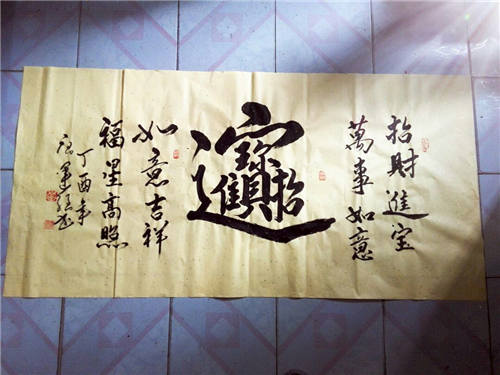 招財進宝
萬事如意
招財進寶
如意吉祥
福星高照
丁酉年